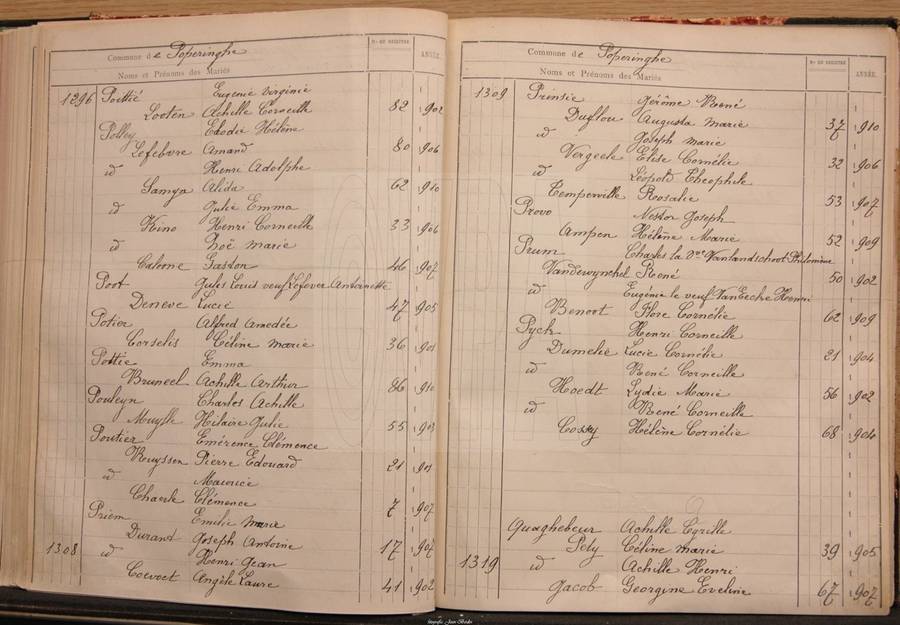 Commune de Poperinghe
Noms et Prénoms des Mariés
Nº DU REGISTRE
ANNÉE
1296 Pottié Eugenie Virginie
Looten Achille Corneille 82 902
Polley Elodie Hélène
Lefebvre Amand 80 906
id Henri Adolphe
Samyn Alida 62 910
id Julie Emma
Kino Henri Corneille 33 906
id Zoë Marie
Calone Gaston 46 907
Poot Jules Louis veuf Lefever Antoinette
Deneve Lucie 47 905
Potier Alfred Amedée
Corselis Céline Marie 36 901
Pottie Emma
Bruneel Achille Arthur 86 910
Pouleyn Charles Achille
Muylle Hilaire Julie 55 903
Poutier Emérence Clémence
Ruyssen Pierre Edouard 21 901
id Maurice
Chaerle Clémence 7 907
Priem Emilie Marie
Durant Joseph Antoine 17 907
1308 id Henri Jean
Coevoet Angèle Laure 41 902
Commune de Poperinghe
Noms et Prénoms des Mariés
Nº DU REGISTRE
ANNÉE
1309 Prinsie Jérôme René
Duflou Augusta Marie 37 910
id Joseph Marie
Vergeele Elise Cornélie 32 906
id Léopold Theophile
Temperville Rosalie 53 907
Provo Nestor Joseph
Ampen Hélène Marie 52 909
Prum Charles la Vve Vanlandschoot Philomène
Vandewynckel René 50 902
id Eugénie le veuf VanEecke Henri
Benoot Flore Cornélie 62 909
Pyck Henri Corneille
Dumelie Lucie Cornélie 21 904
id René Corneille
Hoedt Lydie Marie 56 902
id René Corneille
Cossey Hélène Cornélie 68 904
Quaghebeur Achille Cyrille
Pety Céline Marie 39 905
1319 id Achille Henri
Jacob Georgine Eveline 67 907